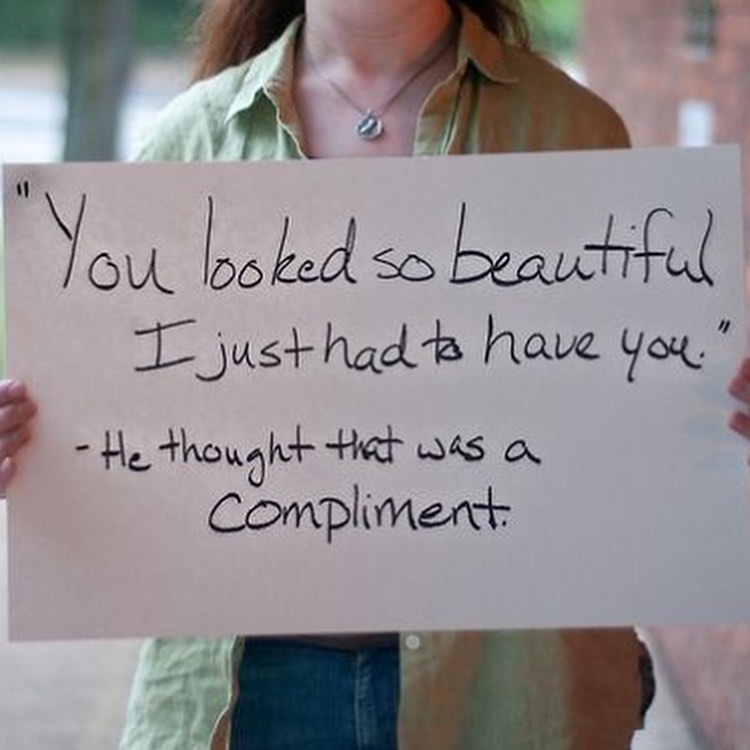 "You looked so beautiful
I just had to have you."
- He thought that was a
compliment.